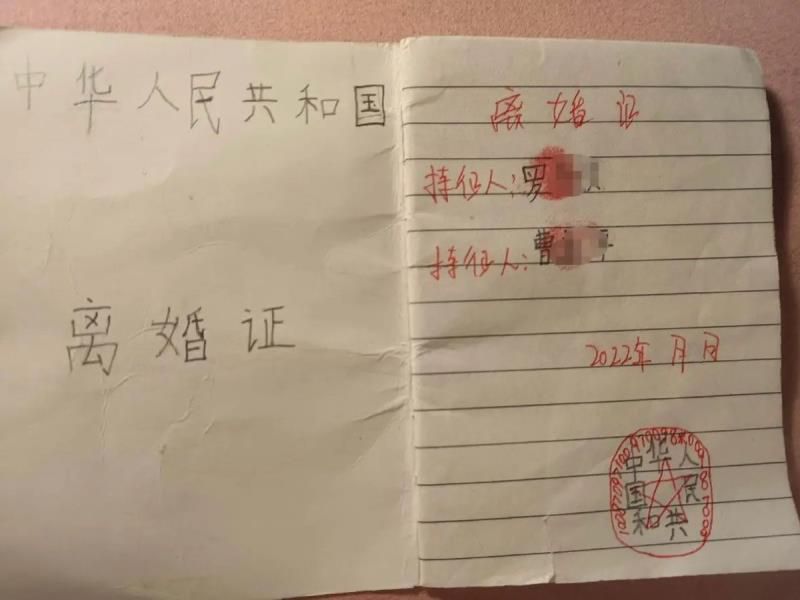 中华人民共和国
离婚证
离婚证
持征人：罗
持征人：曹
2022年 月 日
中华人民共和国